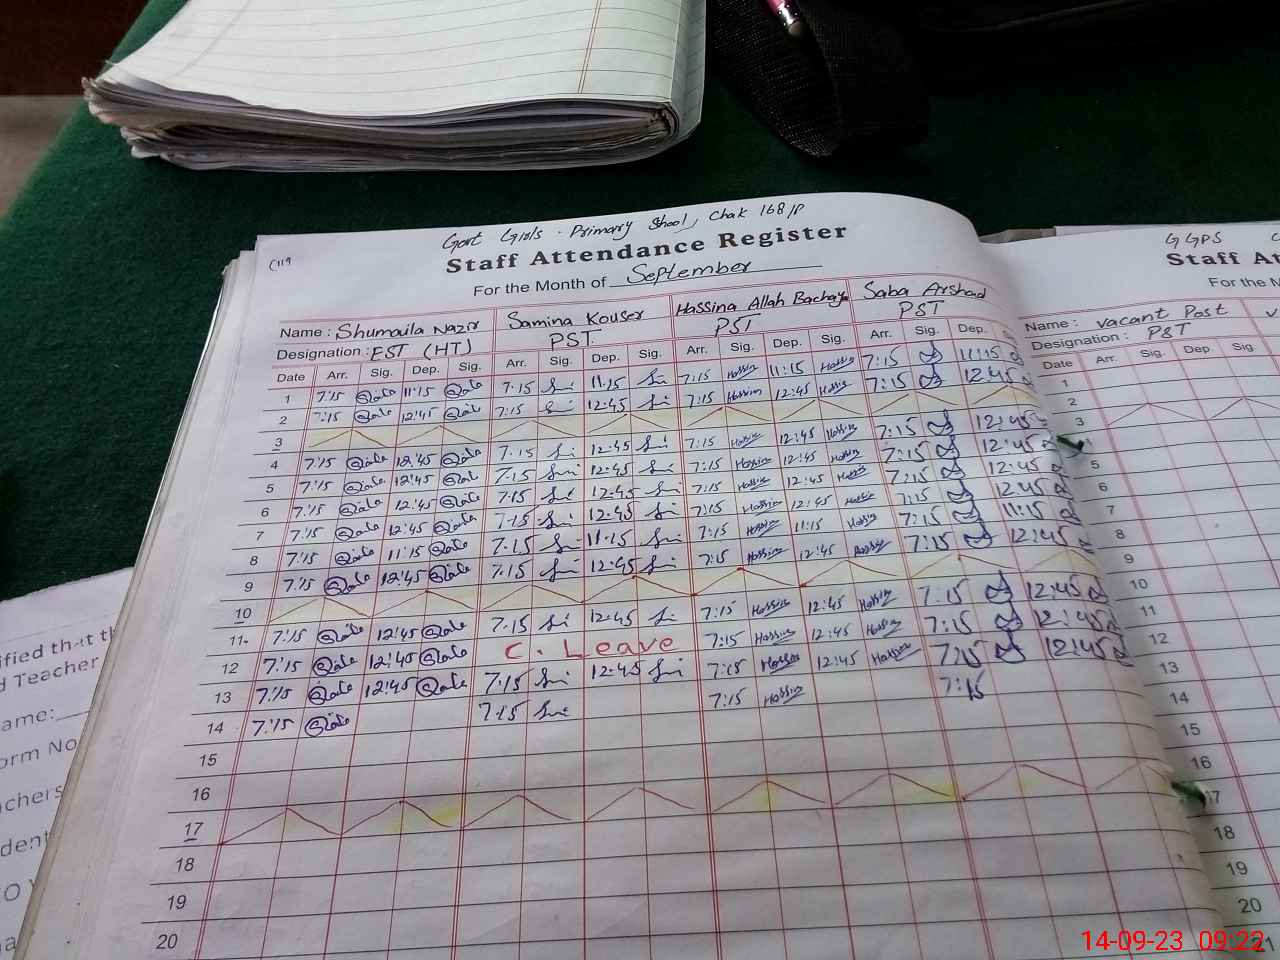 Govt Girls Primary School, Chak 168/P
Staff Attendance Register
For the Month of September
Name : Shumaila Nazir Samina Kouser Hassina Allah Bachaya Saba Arshad
Designation : EST (HT) PST PST PST
Date Arr. Sig. Dep. Sig. Arr. Sig. Dep. Sig. Arr. Sig. Dep. Sig. Arr. Sig. Dep.
1 7:15 11:15 7:15 11:15 7:15 Hassina 11:15 Hassina 7:15 11:15
2 7:15 12:45 7:15 12:45 7:15 Hassina 12:45 Hassina 7:15 12:45
3
4 7:15 12:45 7:15 12:45 7:15 Hassina 12:45 Hassina 7:15 12:45
5 7:15 12:45 7:15 12:45 7:15 Hassina 12:45 Hassina 7:15 12:45
6 7:15 12:45 7:15 12:45 7:15 Hassina 12:45 Hassina 7:15 12:45
7 7:15 12:45 7:15 12:45 7:15 Hassina 12:45 Hassina 7:15 12:45
8 7:15 11:15 7:15 11:15 7:15 Hassina 11:15 Hassina 7:15 11:15
9 7:15 12:45 7:15 12:45 7:15 Hassina 12:45 Hassina 7:15 12:45
10
11 7:15 12:45 7:15 12:45 7:15 Hassina 12:45 Hassina 7:15 12:45
12 7:15 12:45 C. Leave 7:15 Hassina 12:45 Hassina 7:15 12:45
13 7:15 12:45 7:15 12:45 7:15 Hassina 12:45 Hassina 7:15 12:45
14 7:15 7:15 7:15 Hassina 7:15
15
16
17
18
19
20
GGPS
Staff At
For the M
Name : Vacant Post
Designation : PST
Date Arr. Sig. Dep. Sig.
1
2
3
5
6
7
8
9
10
11
12
13
14
15
16
17
18
19
20
21
ified that th
d Teacher
ame:
orm No
achers
dent
14-09-23 09:22